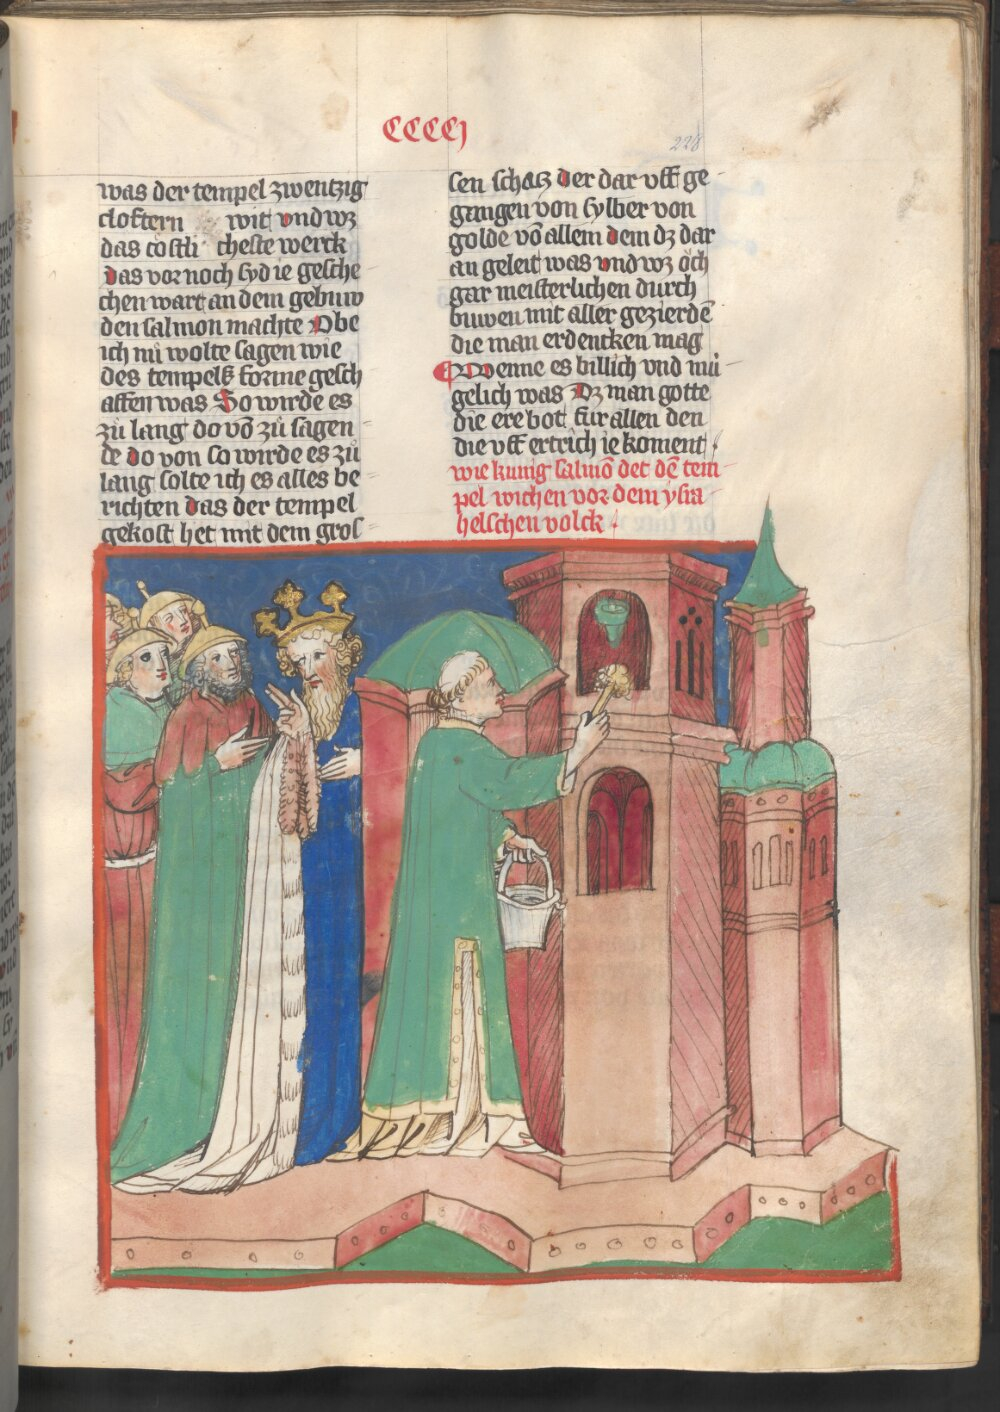 CCCCI
228
was der tempel zwentzig
cloftern wit vnd wz
das costli cheste werck
das vor noch syd ie gesche
chen wart an dem gebuw
den salmon machte Obe
ich nu̍ wolte sagen wie
des tempelß forme gesch
affen was So wirde es
zu̍ lang do vō zu̍ sagen
de do von so wirde es zu̍
lang solte ich es alles be
richten das der tempel
gekost het mit dem gros
sen schatz der dar vff ge
gangen von sylber von
golde vō allem dem dz dar
an geleit was vnd wz och
gar meisterlichen durch
buwen mit aller gezierdē
die man erdencken mag
Wenne es billich vnd mu̍
gelich was Dz man gotte
die ere bot fur allen den
die vff ertrich ie koment
wie kunig salmō det dē tem
pel wichen vor dem ysra
helschen volck